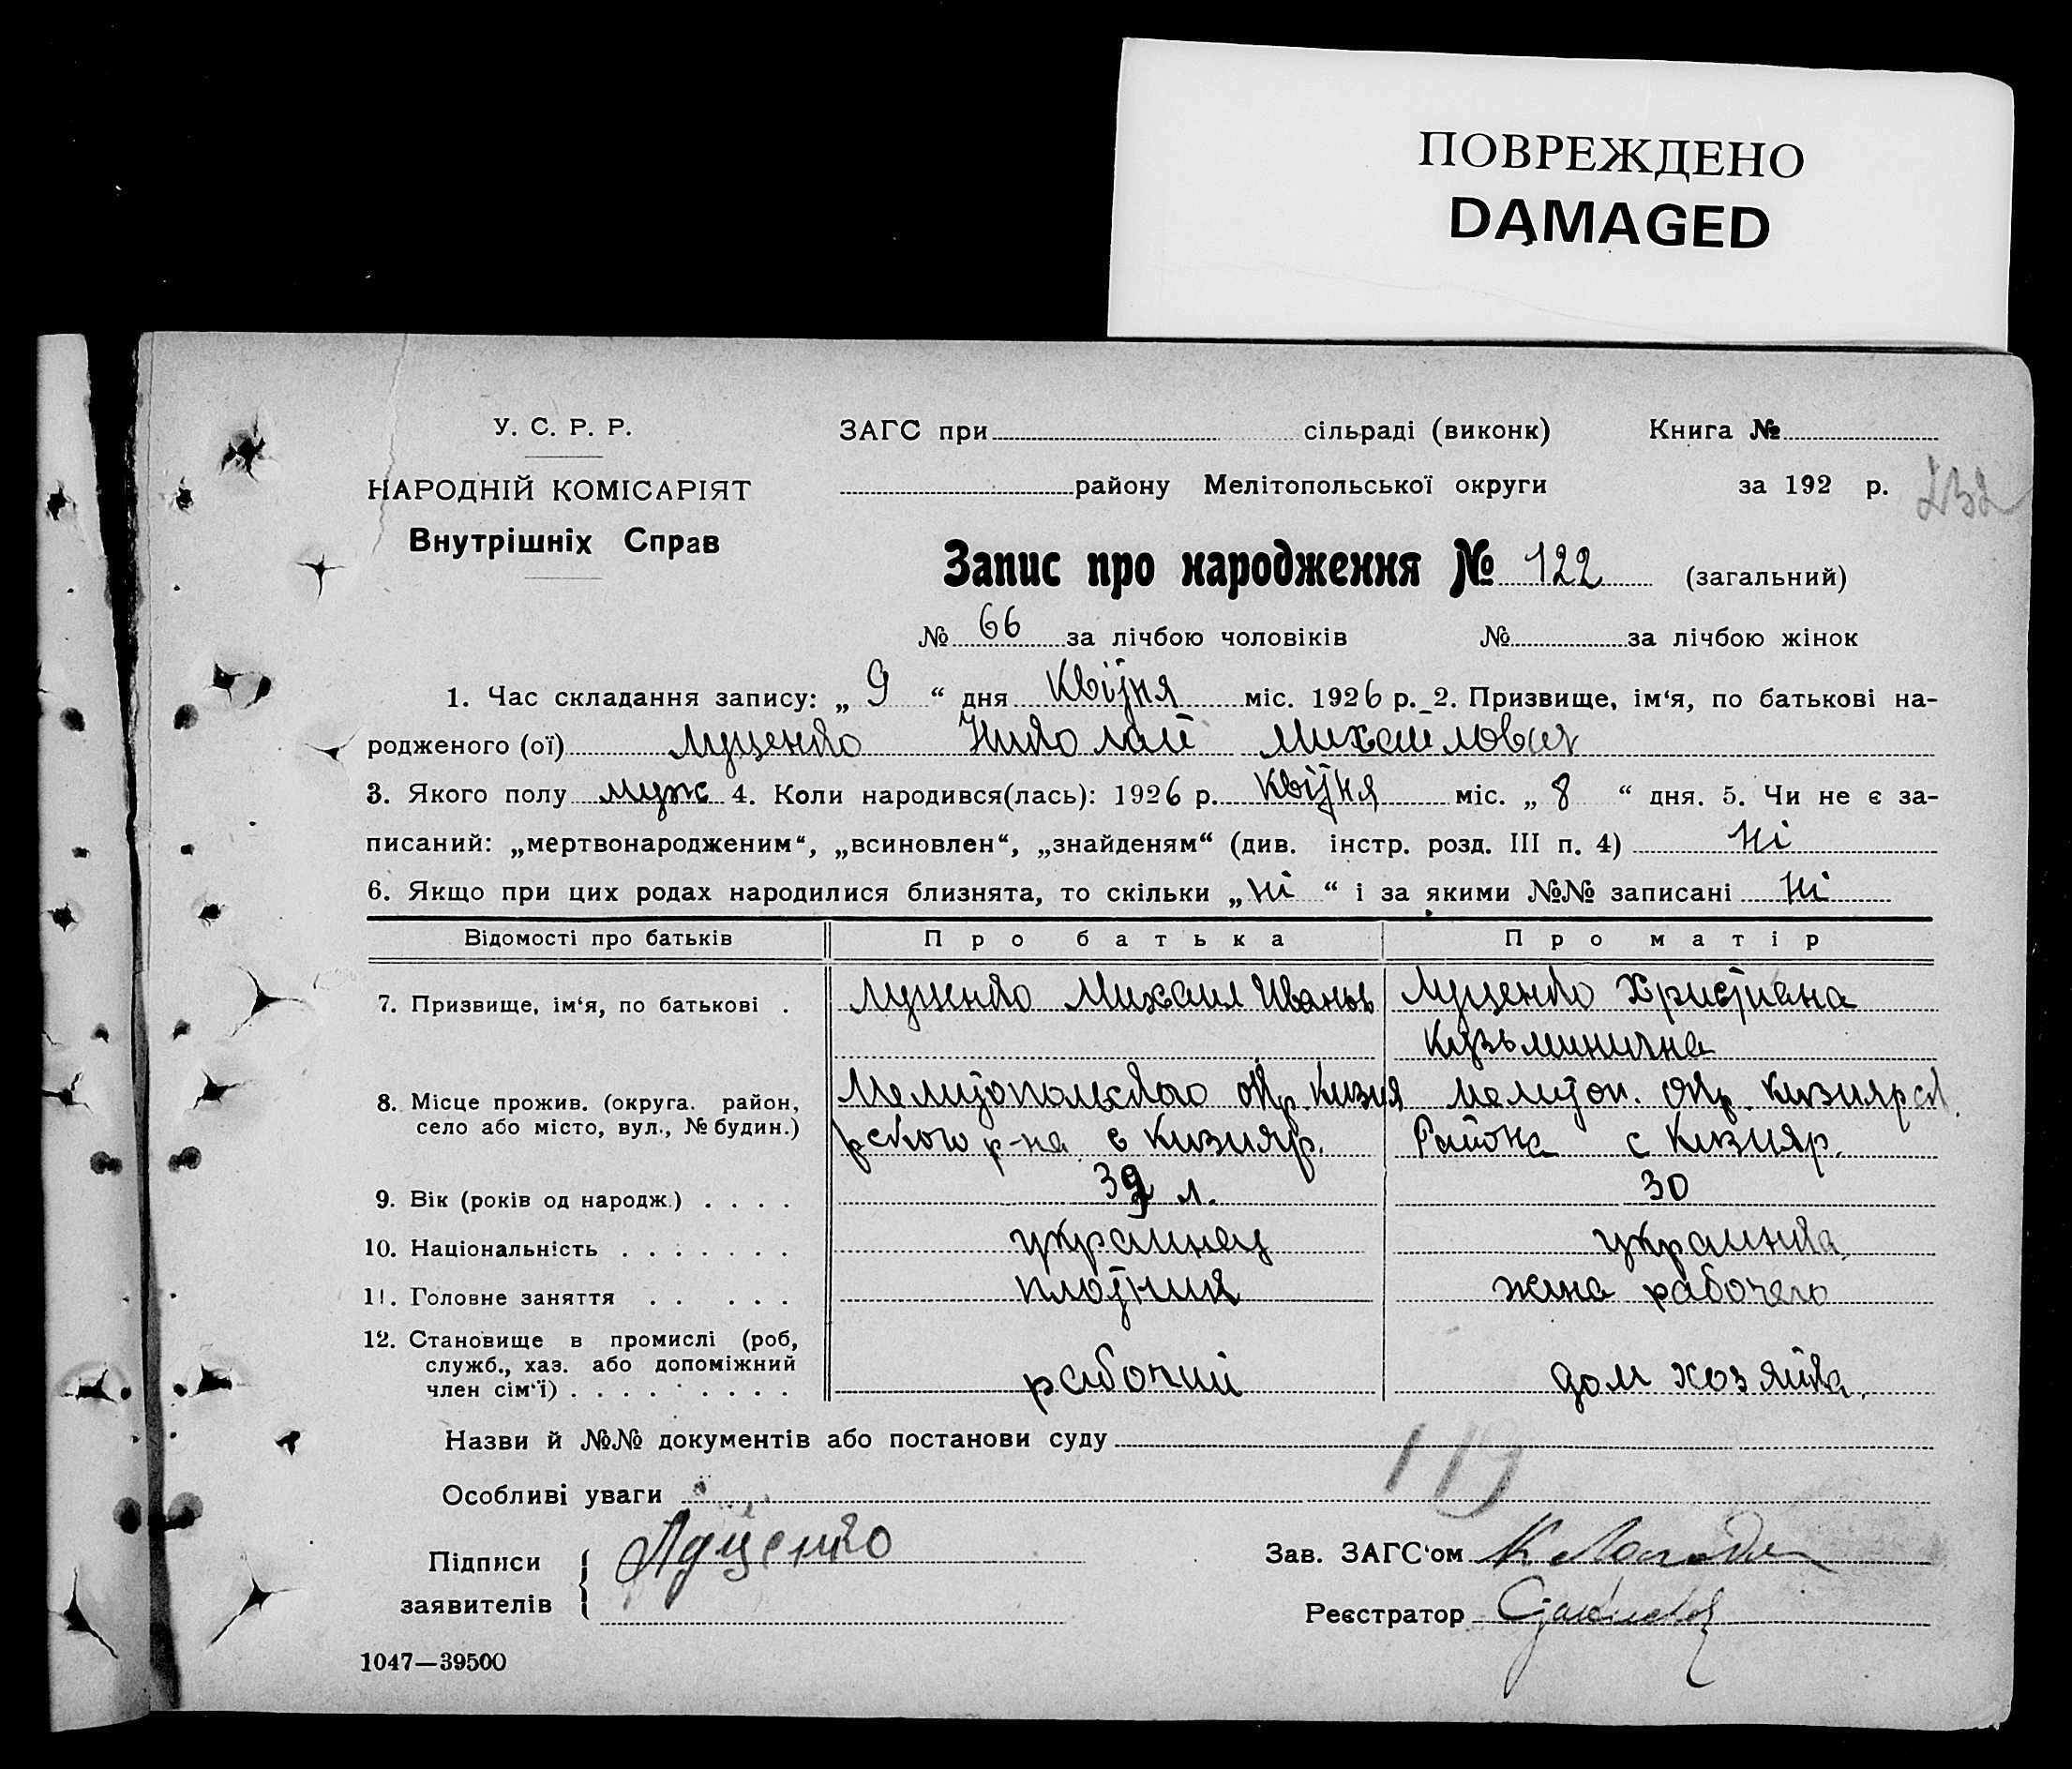 ПОВРЕЖДЕНО
DAMAGED
У. С. Р. Р.
НАРОДНІЙ КОМІСАРІЯТ
Внутрішніх Справ
ЗАГС при сільраді (виконк) Книга №
району Мелітопольської округи за 192 р.
232
Запис про народження № 122 (загальний)
№ 66 за лічбою чоловіків № за лічбою жінок
1. Час складання запису: „ 9 “ дня Квітня міс. 1926 р. 2. Призвище, ім‘я, по батькові на-
родженого (ої) Луценко Николай Михаилович
3. Якого полу муж 4. Коли народився(лась): 1926 р. Квітня міс. „ 8 “ дня. 5. Чи не є за-
писаний: „мертвонародженим“, „всиновлен“, „знайденям“ (див. інстр. розд. III п. 4) Ні
6. Якщо при цих родах народилися близнята, то скільки „ Ні “ і за якими №№ записані Ні
Відомості про батьків Про батька Про матір
7. Призвище, ім‘я, по батькові . Луценко Михаил Иванов Луценко Христиана
Кузьминична
8. Місце прожив. (округа. район, село або місто, вул., № будин.) Мелитопольского окр. Кизия Мелитоп. окр. Кизиярск.
рского р-на с Кизияр. Района с Кизияр.
9. Вік (років од народж.) . . . . 39 л. 30
10. Національність . . . . . . . украинец украинка
11. Головне заняття . . . . . плотник жена рабочего
12. Становище в промислі (роб,
служб., хаз. або допоміжний
член сім‘ї) . . . . . . . . . . рабочий дом хозяйка.
Назви й №№ документів або постанови суду
Особливі уваги
Підписи
заявителів
Луценко
Зав. ЗАГС‘ом
Реєстратор
1047—39500